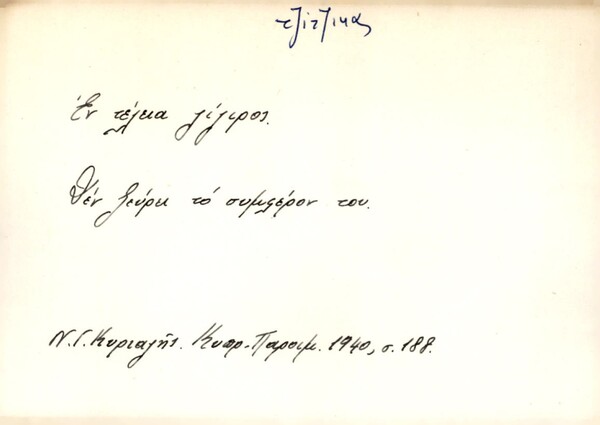 τζίτζικας
Ἐν τέλεια γίλιρος.
Δέν ξεύρει τό συμφέρον του.
Ν.Γ. Κυριαζῆς. Κυπρ. Παροιμ. 1940, σ. 188.